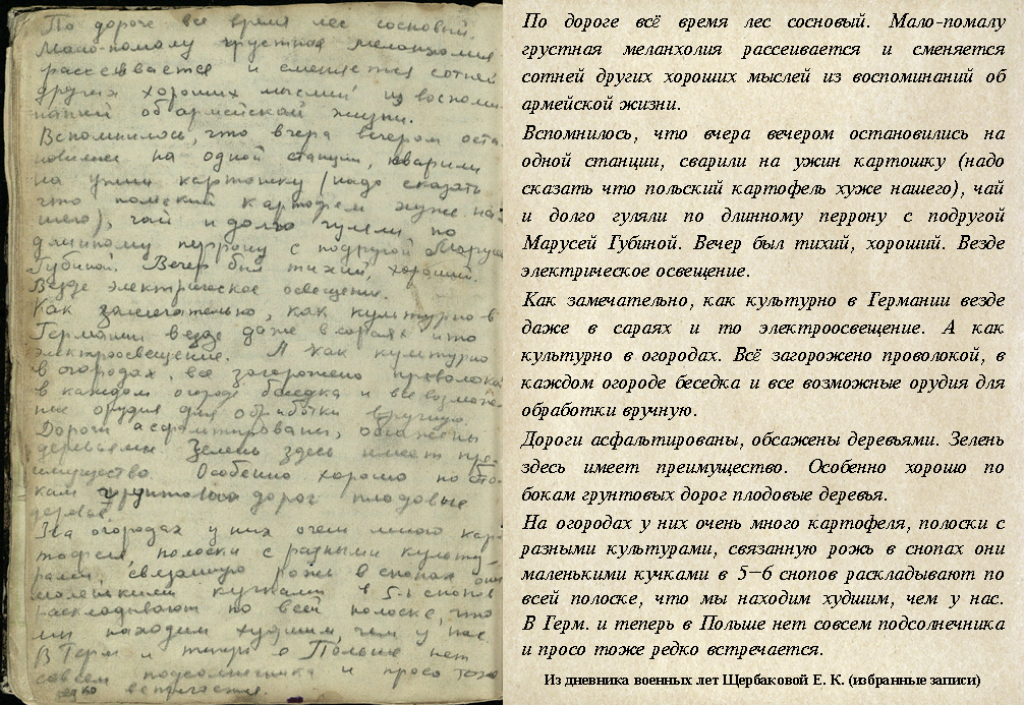 По дороге все время лес сосновый.
Мало-помалу грустная меланхолия
рассеивается и сменяется сотней
других хороших мыслей из воспоми-
наний об армейской жизни.
Вспомнилось, что вчера вечером оста-
новились на одной станции, сварили
на ужин картошку (надо сказать
что польский картофель хуже на-
шего), чай и долго гуляли по
длинному перрону с подругой Марусей
Губиной. Вечер был тихий, хороший.
Везде электрическое освещение.
Как замечательно, как культурно в
Германии везде даже в сараях и то
электроосвещение. А как культурно
в огородах, все загорожено проволокой
в каждом огороде беседка и все возмож-
ные орудия для обработки вручную.
Дороги асфальтированы, обсажены
деревьями. Зелень здесь имеет пре-
имущество. Особенно хорошо по бо-
кам грунтовых дорог плодовые
деревья.
На огородах у них очень много кар-
тофеля, полоски с разными культу-
рами, связанную рожь в снопах они
маленькими кучками в 5-6 снопов
раскладывают по всей полоске, что
мы находим худшим, чем у нас
В Герм и теперь в Польше нет
совсем подсолнечника и просо тоже
редко встречается.
По дороге всё время лес сосновый. Мало-помалу
грустная меланхолия рассеивается и сменяется
сотней других хороших мыслей из воспоминаний об
армейской жизни.
Вспомнилось, что вчера вечером остановились на
одной станции, сварили на ужин картошку (надо
сказать что польский картофель хуже нашего), чай
и долго гуляли по длинному перрону с подругой
Марусей Губиной. Вечер был тихий, хороший. Везде
электрическое освещение.
Как замечательно, как культурно в Германии везде
даже в сараях и то электроосвещение. А как
культурно в огородах. Всё загорожено проволокой, в
каждом огороде беседка и все возможные орудия для
обработки вручную.
Дороги асфальтированы, обсажены деревьями. Зелень
здесь имеет преимущество. Особенно хорошо по
бокам грунтовых дорог плодовые деревья.
На огородах у них очень много картофеля, полоски с
разными культурами, связанную рожь в снопах они
маленькими кучками в 5–6 снопов раскладывают по
всей полоске, что мы находим худшим, чем у нас.
В Герм. и теперь в Польше нет совсем подсолнечника
и просо тоже редко встречается.
Из дневника военных лет Щербаковой Е. К. (избранные записи)